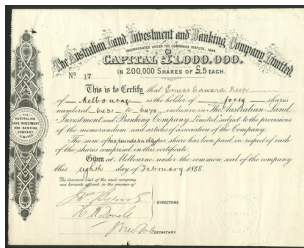 The Australian Land Investment and Banking Company Limited.
INCORPORATED UNDER THE COMPANIES STATUTE, 1864.
CAPITAL £1,000,000.
IN 200,000 SHARES OF £5 EACH.
No 17
This is to Certify that Ernest Edward
of Melbourne is the holder of forty shares
numbered to inclusive in The Australian Land
Investment and Banking Company Limited subject to the provisions
of the memorandum and articles of association of the Company.
The sum of per share has been paid in respect of each
of the shares comprised in this certificate.
Given at Melbourne under the common seal of the company
this eighth day of February 1888
The common seal of the said company
was hereunto affixed in the presence of
DIRECTORS.
SECRETARY.
THE AUSTRALIAN
LAND INVESTMENT
AND BANKING
COMPANY
LIMITED